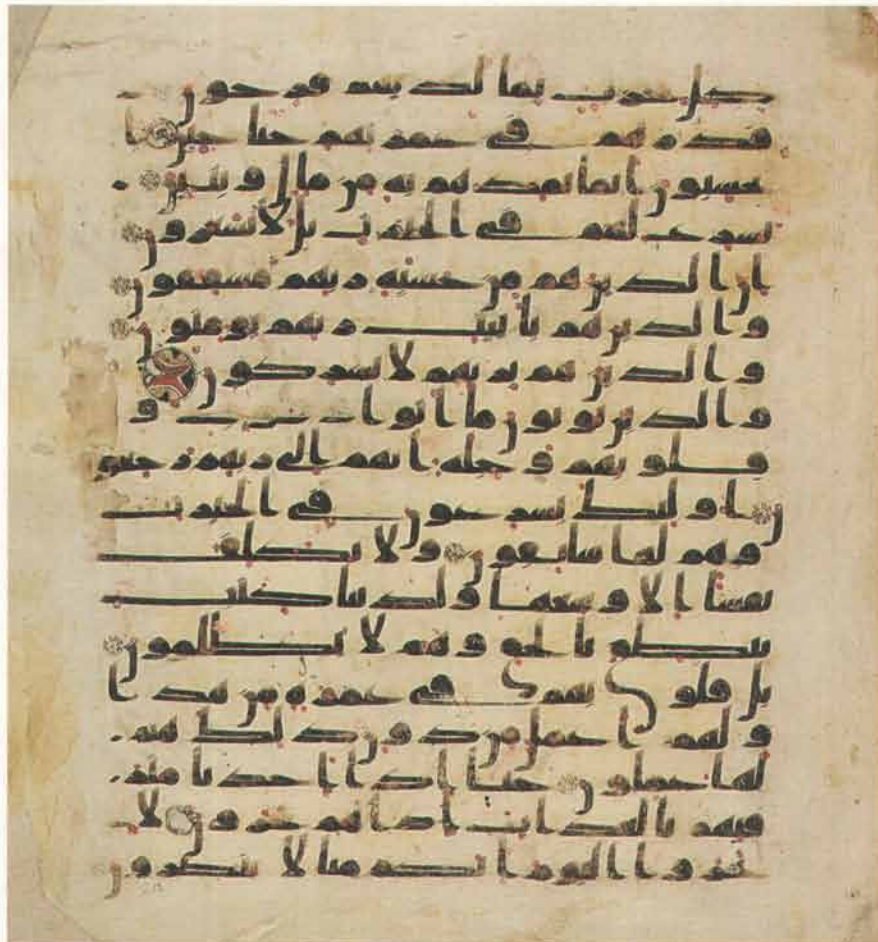 كل حزب بما لديهم فرحون
فذرهم في غمرتهم حتى حين ا
يحسبون انما نمدهم به من مال وبنين
نسرع لهم في الخيرت بل لا يشعرون
ان الذين هم من خشية ربهم مشفقون
والذين هم بايت ربهم يومنون
والذين هم بربهم لا يشركون
والذين يوتون ما اتوا و
قلوبهم وجلة انهم الى ربهم رجعو
ن اوليك يسرعون في الخيرت
وهم لها سابقون ولا نكلف
نفسا الا وسعها ولدينا كتب
ينطق بالحق وهم لا يظلمون
بل قلوبهم في غمرة من هذا
ولهم اعمل من دون ذلك هم
لها عملون حتى اذا اخذنا متر
فيهم بالعذاب اذا هم يجرون لا
تجروا اليوم انكم منا لا تنصرون